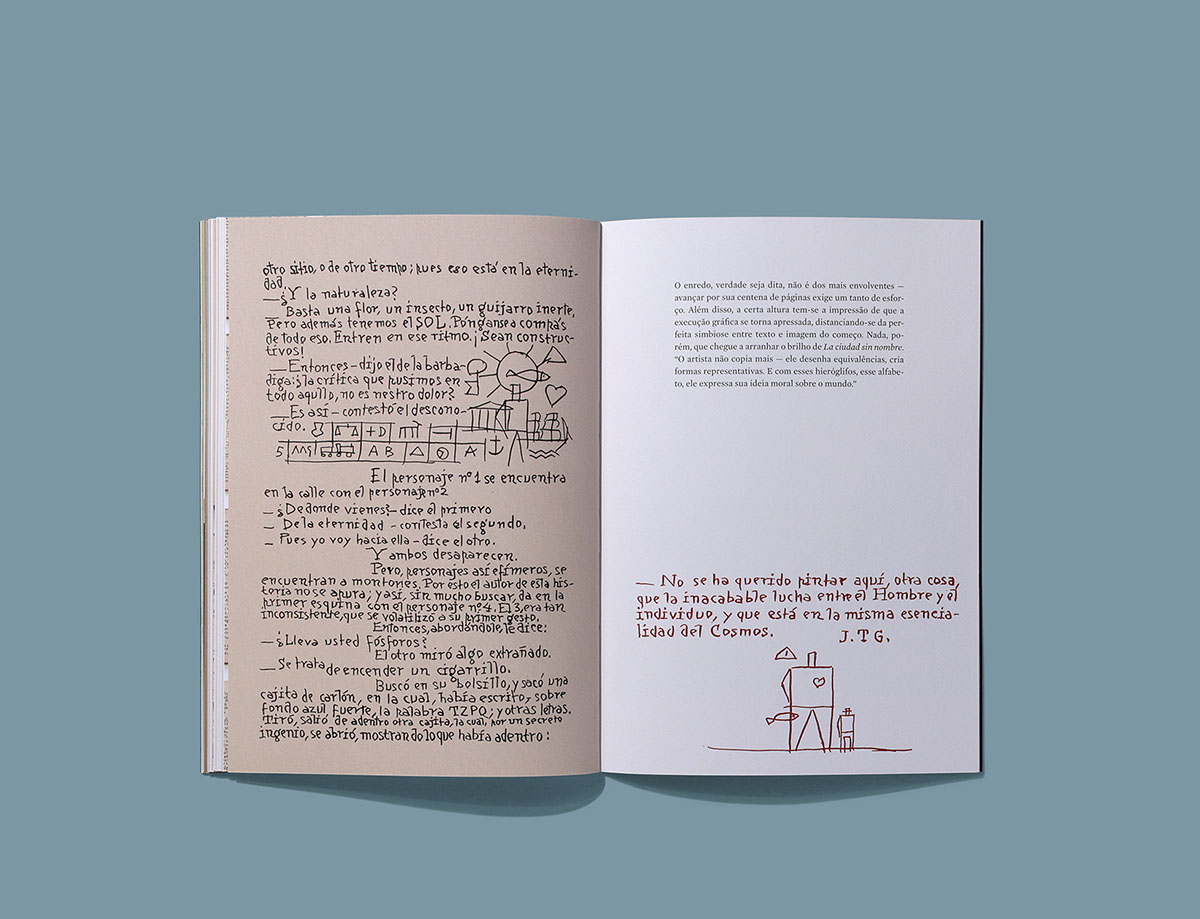 otro sitio, o de otro tiempo; pues eso está en la eterni-
dad.
—¿Y la naturaleza?
— Basta una flor, un insecto, un guijarro inerte,
Pero además tenemos el SOL. Pónganse a compás
de todo eso. Entren en ese ritmo. ¡Sean construc-
tivos!
— Entonces – dijo el de la barba-
diga: ¿la crítica que pusimos en
todo aqullo, no es nestro dolor?
— Es así – contestó el descono-
cido.
+D
5 AB A
El personaje nº 1 se encuentra
en la calle con el personaje nº 2
— ¿De donde vienes? – dice el primero
— De la eternidad – contesta el segundo.
— Pues yo voy hacia ella – dice el otro.
Y ambos desaparecen.
Pero, personajes así efímeros, se
encuentran a montones. Por ésto el autor de esta his-
toria no se apura; y así, sin mucho buscar, da en la
primer esquina con el personaje nº 4. El 3, era tan
inconsistente, que se volatilizó a su primer gesto.
Entonces, abordándole, le dice:
— ¿Lleva usted fósforos?
El otro miró algo extrañado.
— Se trata de encender un cigarrillo.
Buscó en su bolsillo, y sacó una
cajita de cartón, en la cual, había escrito, sobre
fondo azul fuerte, la palabra TZPQ; y otras letras.
Tiró, salió de adentro otra cajita, la cual, por un secreto
ingenio, se abrió, mostrando lo que había adentro:
O enredo, verdade seja dita, não é dos mais envolventes —
avançar por sua centena de páginas exige um tanto de esfor-
ço. Além disso, a certa altura tem-se a impressão de que a
execução gráfica se torna apressada, distanciando-se da per-
feita simbiose entre texto e imagem do começo. Nada, po-
rém, que chegue a arranhar o brilho de La ciudad sin nombre.
“O artista não copia mais — ele desenha equivalências, cria
formas representativas. E com esses hieróglifos, esse alfabe-
to, ele expressa sua ideia moral sobre o mundo.”
— No se ha querido pintar aquí, otra cosa,
que la inacabable lucha entre el Hombre y el
individuo, y que está en la misma esencia-
lidad del Cosmos. J.T G.